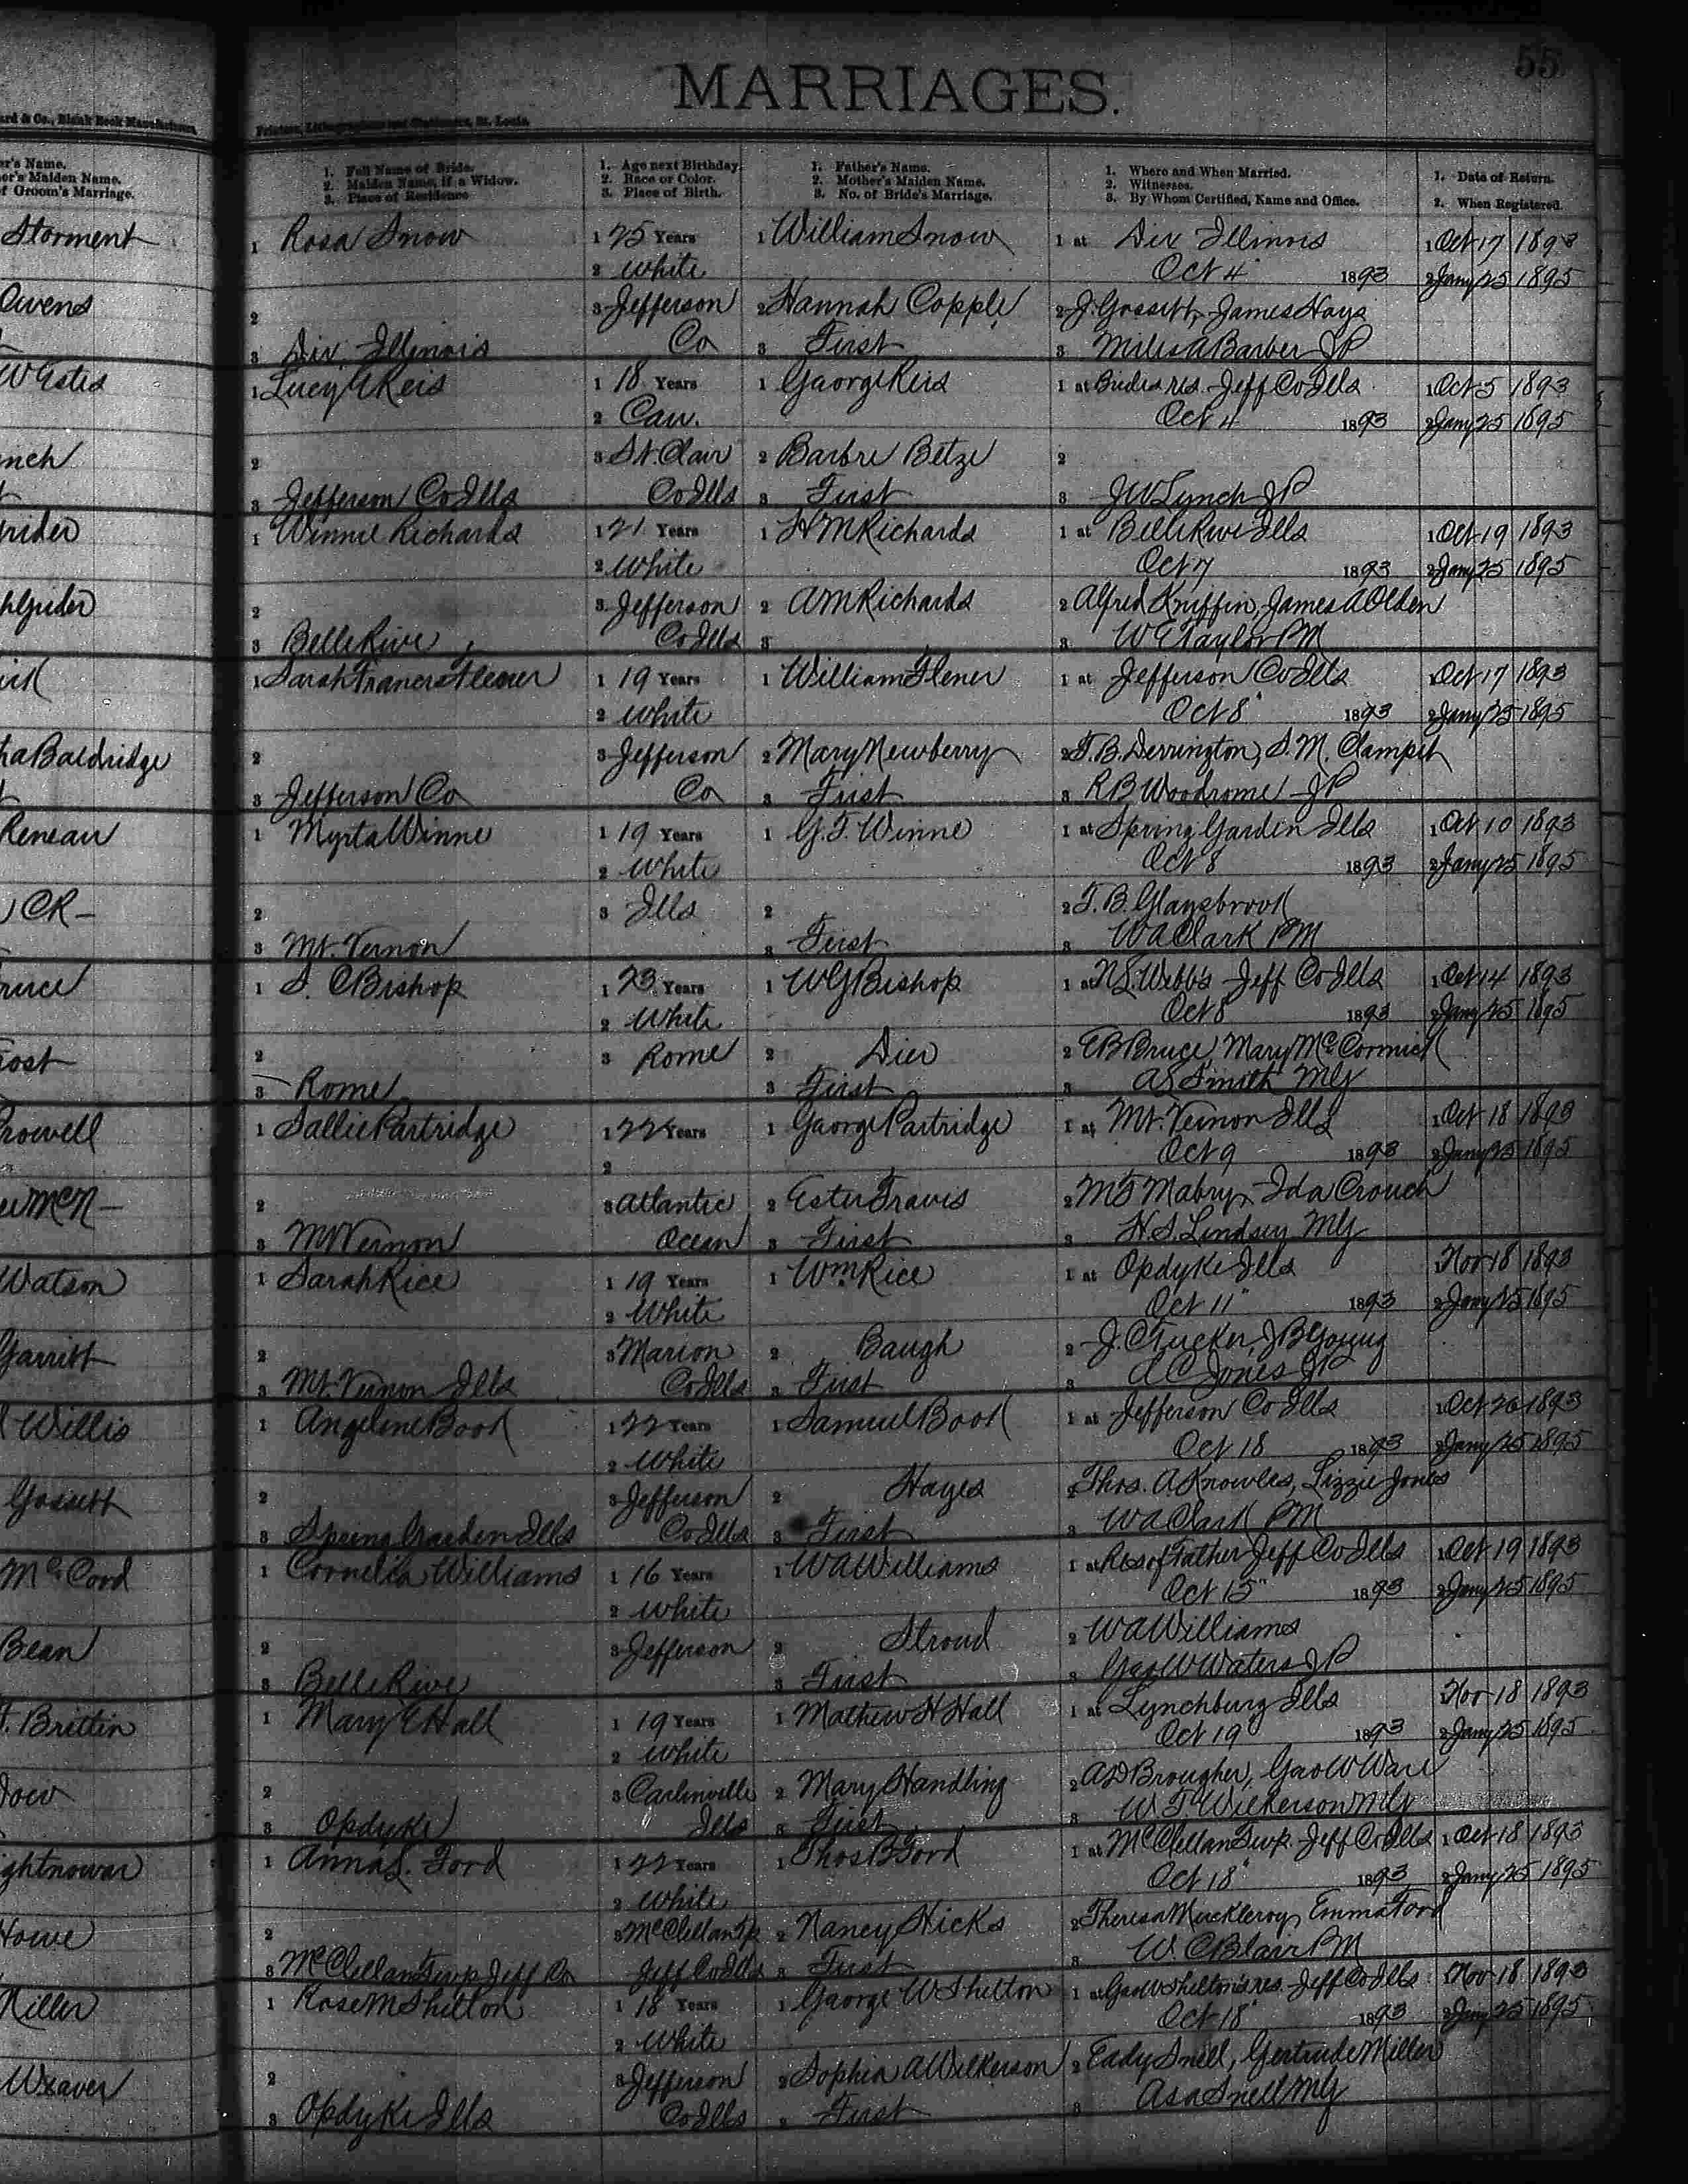 55
MARRIAGES.
ard & Co., Blank Book Manufacturers,
Printers, Lithographers and Stationers, St. Louis.
er's Name.
er's Maiden Name.
f Groom's Marriage.
1. Full Name of Bride.
2. Maiden Name, if a Widow.
3. Place of Residence
1. Age next Birthday.
2. Race or Color.
3. Place of Birth.
1. Father's Name.
2. Mother's Maiden Name.
3. No. of Bride's Marriage.
1. Where and When Married.
2. Witnesses.
3. By Whom Certified, Name and Office.
1. Date of Return.
2. When Registered.
Storment 1 Rosa Snow 1 25 Years 1 William Snow 1 at Dix Illinois 1 Oct 17 1893
2 White Oct 4 1893 2 Jany 25 1895
Owens 2 3 Jefferson 2 Hannah Copple 2 J. Gossett, James Hays
3 Dix Illinois Co 3 First 3 Miles A Barber JP
W Estes 1 Lucy E Reis 1 18 Years 1 George Reis 1 at Brides res. Jeff Co Ills 1 Oct 5 1893
2 Cau. Oct 4 1893 2 Jany 25 1895
nch 2 3 St. Clair 2 Barbre Betze 2
3 Jefferson Co Ills Co Ills 3 First 3 JW Lynch JP
rider 1 Winnie Richards 1 21 Years 1 H M Richards 1 at Belle Rive Ills 1 Oct 19 1893
2 White Oct 7 1893 2 Jany 25 1895
h Grider 2 3 Jefferson 2 A M Richards 2 Alfred Kniffin, James A Olden
3 Belle Rive Co Ills 3 3 W E Taylor PM
1 Sarah Frances Flener 1 19 Years 1 William Flener 1 at Jefferson Co Ills 1 Oct 17 1893
2 White Oct 8" 1893 2 Jany 25 1895
ha Baldridge 2 3 Jefferson 2 Mary Newberry 2 T. B. Derrington, S. M. Clampet
3 Jefferson Co Co 3 First 3 R B Woodrome JP
Reneau 1 Myrta Winne 1 19 Years 1 G. T. Winne 1 at Spring Garden Ills 1 Oct 10 1893
2 White Oct 8 1893 2 Jany 25 1895
CR- 2 3 Ills 2 2 T. B. Glazebrook
3 Mt. Vernon 3 First 3 W A Clark PM
ruce 1 S. C Bishop 1 23 Years 1 W G Bishop 1 at N L Webb's Jeff Co Ills 1 Oct 14 1893
2 White Oct 8" 1893 2 Jany 25 1895
ost 2 3 Rome 2 Dier 2 E B Bruce, Mary McCormick
3 Rome 3 First 3 A S Smith MG
rowell 1 Sallie Partridge 1 22 Years 1 George Partridge 1 at Mt. Vernon Ills 1 Oct 18 1893
2 Oct 9 1893 2 Jany 25 1895
McN- 2 3 Atlantic 2 Ester Travis 2 M T Mabry, Ida Crouch
3 Mt Vernon Ocean 3 First 3 H. S. Lindsey MG
Watson 1 Sarah Rice 1 19 Years 1 Wm Rice 1 at Opdyke Ills 1 Nov 18 1893
2 White Oct 11" 1893 2 Jany 25 1895
Garritt 2 3 Marion 2 Baugh 2 J. C Tucker, J B Young
3 Mt. Vernon Ills Co Ills 3 First 3 A C Jones JP
Willis 1 Angeline Book 1 22 Years 1 Samuel Book 1 at Jefferson Co Ills 1 Oct 26 1893
2 White Oct 18 1893 2 Jany 25 1895
Gossett 2 3 Jefferson 2 Hayes 2 Thos. A Knowles, Lizzie Jones
3 Spring Garden Ills Co Ills 3 First 3 W A Clark PM
McCord 1 Cornelia Williams 1 16 Years 1 W A Williams 1 at Res of Father Jeff Co Ills 1 Oct 19 1893
2 White Oct 15" 1893 2 Jany 25 1895
Bean 2 3 Jefferson 2 Stroud 2 W A Williams
3 Belle Rive 3 First 3 Geo W Waters JP
T. Brittin 1 Mary E Hall 1 19 Years 1 Mathew H Hall 1 at Lynchburg Ills 1 Nov 18 1893
2 White Oct 19 1893 2 Jany 25 1895
2 3 Carlinville 2 Mary Handling 2 A D Brougher, Geo W Ware
3 Opdyke Ills 3 First 3 W. T. Wilkerson MG
ightnowar 1 Anna L. Ford 1 22 Years 1 Thos B Ford 1 at McClellan Twp. Jeff Co Ills 1 Oct 18 1893
2 White Oct 18" 1893 2 Jany 25 1895
Howe 2 3 McClellan Tp 2 Nancy Hicks 2 Theresa Muckleroy, Emma Ford
3 McClellan Twp Jeff Co Jeff Co Ills 3 First 3 W. C Blair PM
Miller 1 Rose M Shelton 1 18 Years 1 George W Shelton 1 at Geo W Shelton's res. Jeff Co Ills 1 Nov 18 1893
2 White Oct 18" 1893 2 Jany 25 1895
Weaver 2 3 Jefferson 2 Sophia A Wilkerson 2 Eady Snell, Gertrude Miller
3 Opdyke Ills Co Ills 3 First 3 Asa Snell MG